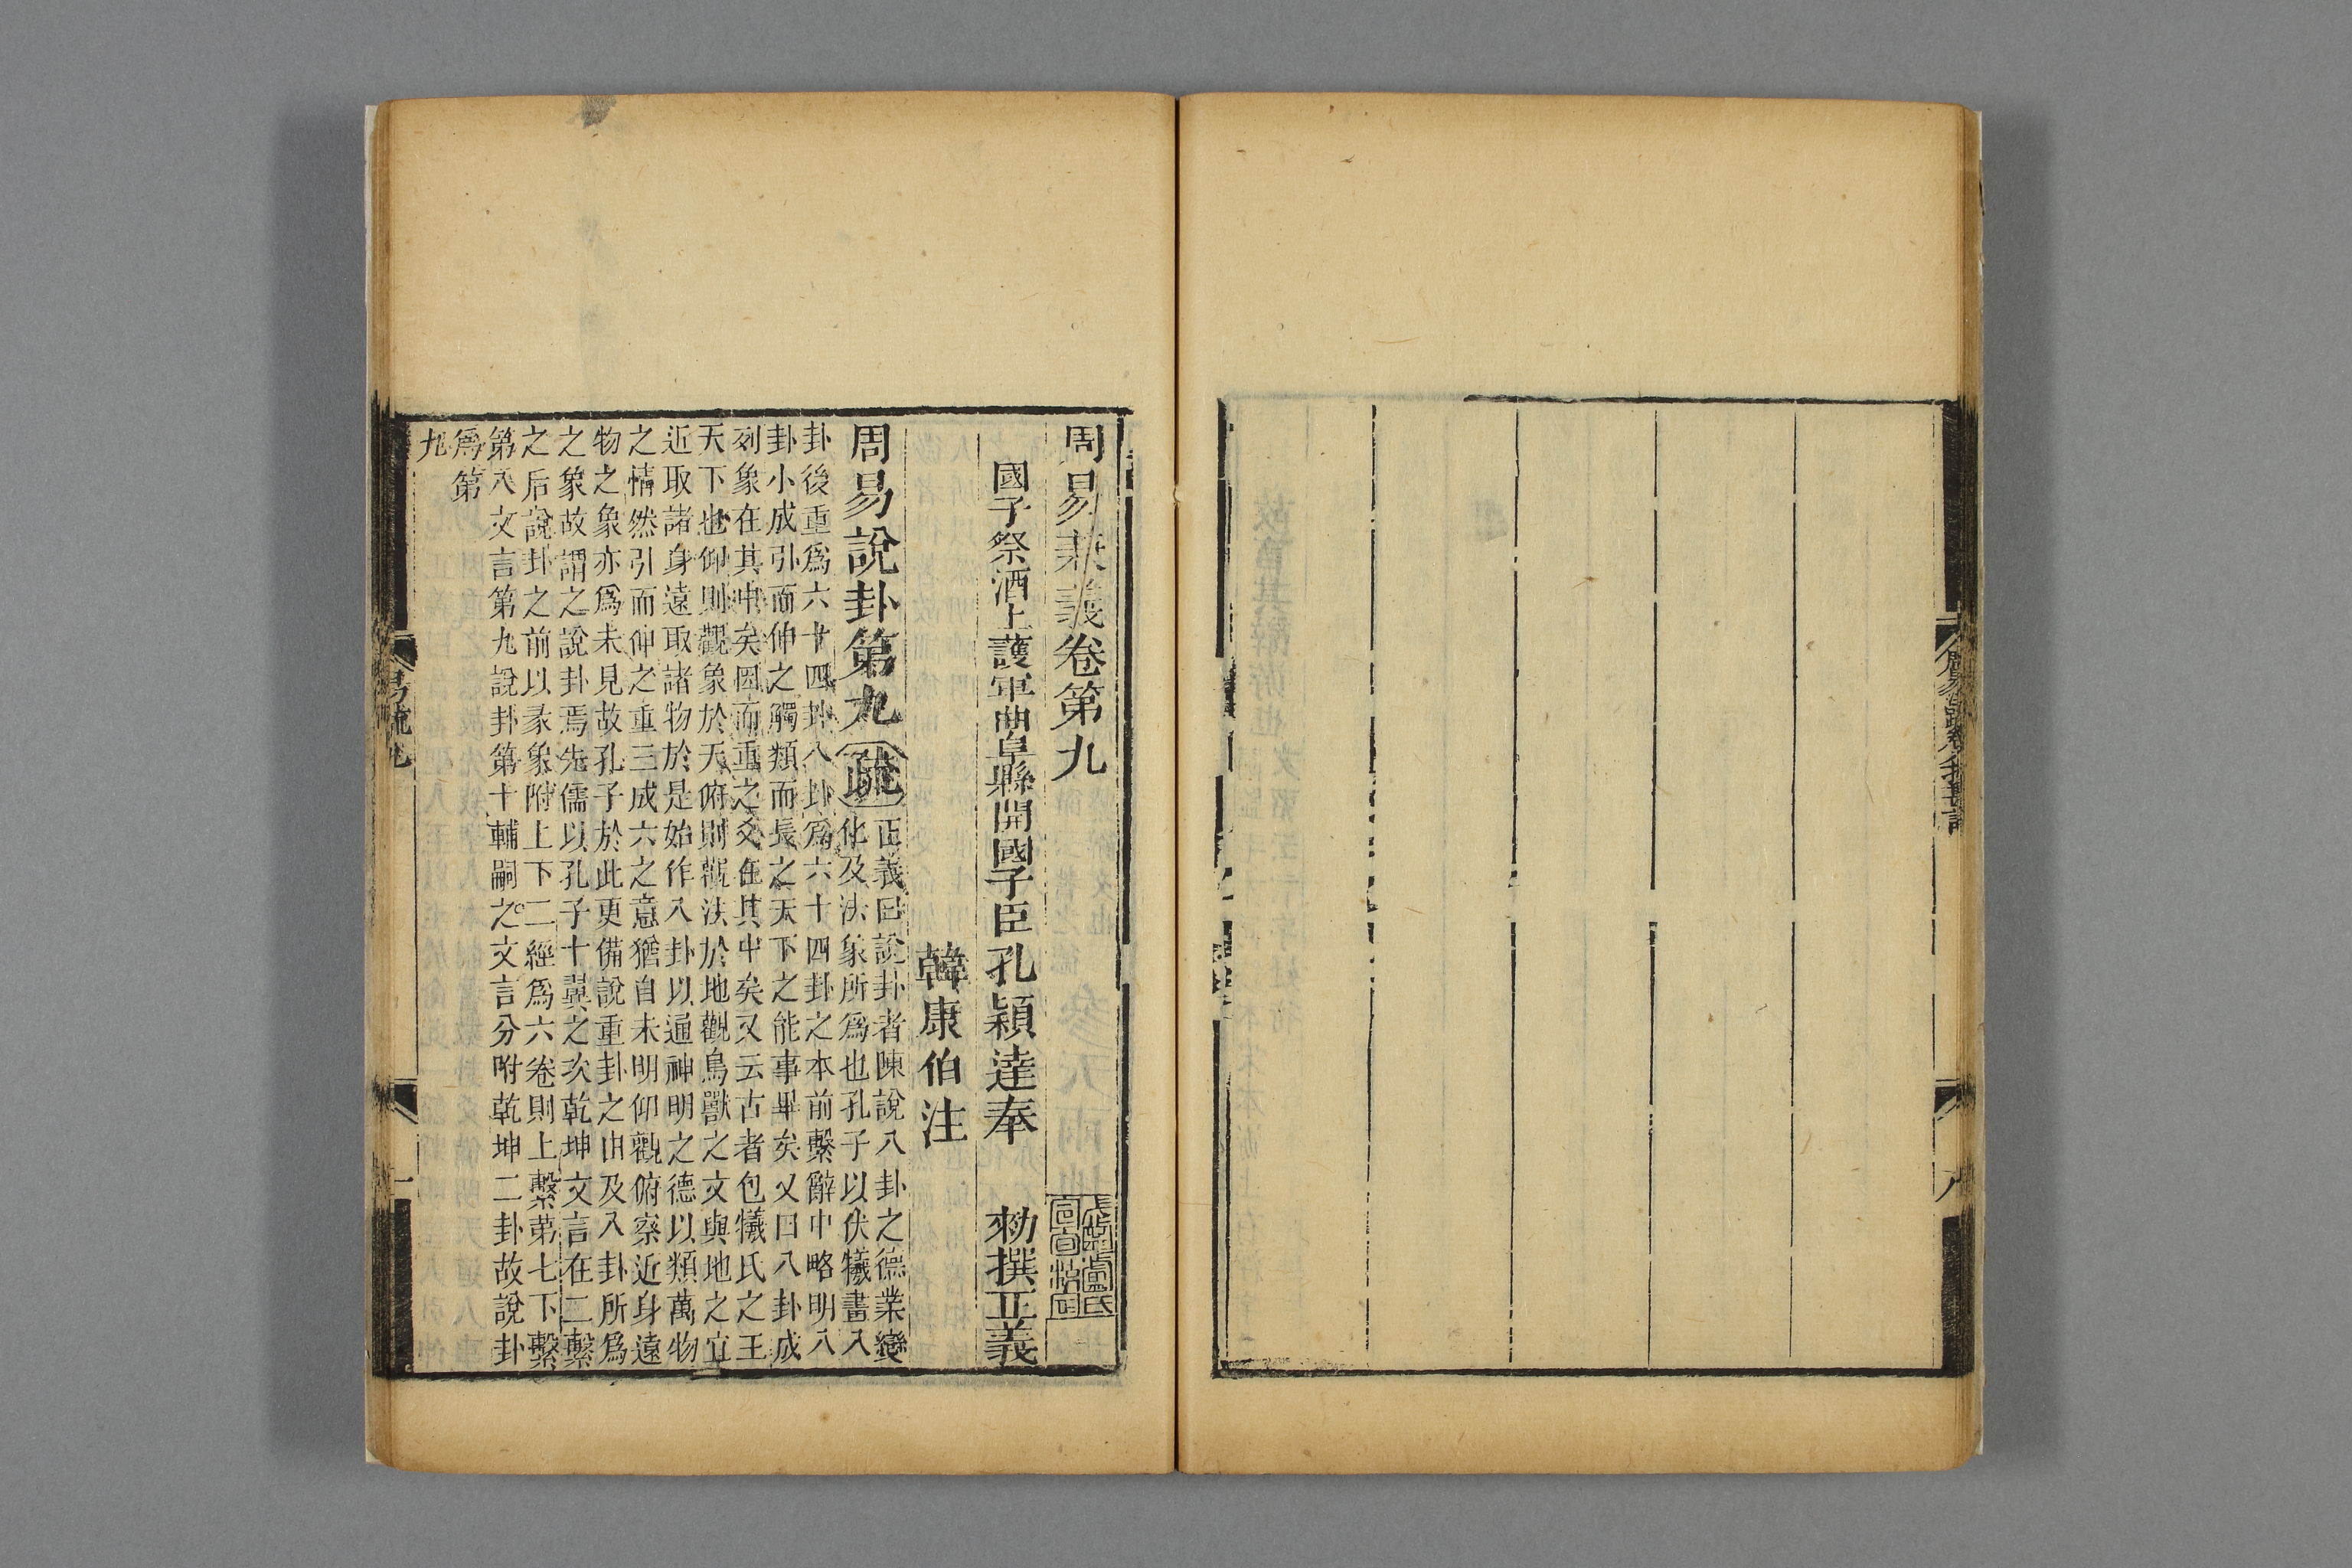 周易兼義卷第九
國子祭酒上護軍曲阜縣開國子臣孔穎達奉 勑撰正義
韓康伯注
周易說卦第九 疏
正義曰說卦者陳說八卦之德業變
化及法象所爲也孔子以伏犧畫八
卦後重爲六十四卦八卦爲六十四卦之本前繫辭中略明八
卦小成引而伸之觸類而長之天下之能事畢矣又曰八卦成
列象在其中矣因而重之爻在其中矣又云古者包犧氏之王
天下也仰則觀象於天俯則觀法於地觀鳥獸之文與地之宜
近取諸身遠取諸物於是始作八卦以通神明之德以類萬物
之情然引而伸之重三成六之意猶自未明仰觀俯察近身遠
物之象亦爲未見故孔子於此更備說重卦之由及八卦所爲
之象故謂之說卦焉先儒以孔子十翼之次乾坤文言在二繫
之后說卦之前以彖象附上下二經爲六卷則上繫第七下繫
第八文言第九說卦第十輔嗣之文言分附乾坤二卦故說卦
爲第
九
易疏九
一